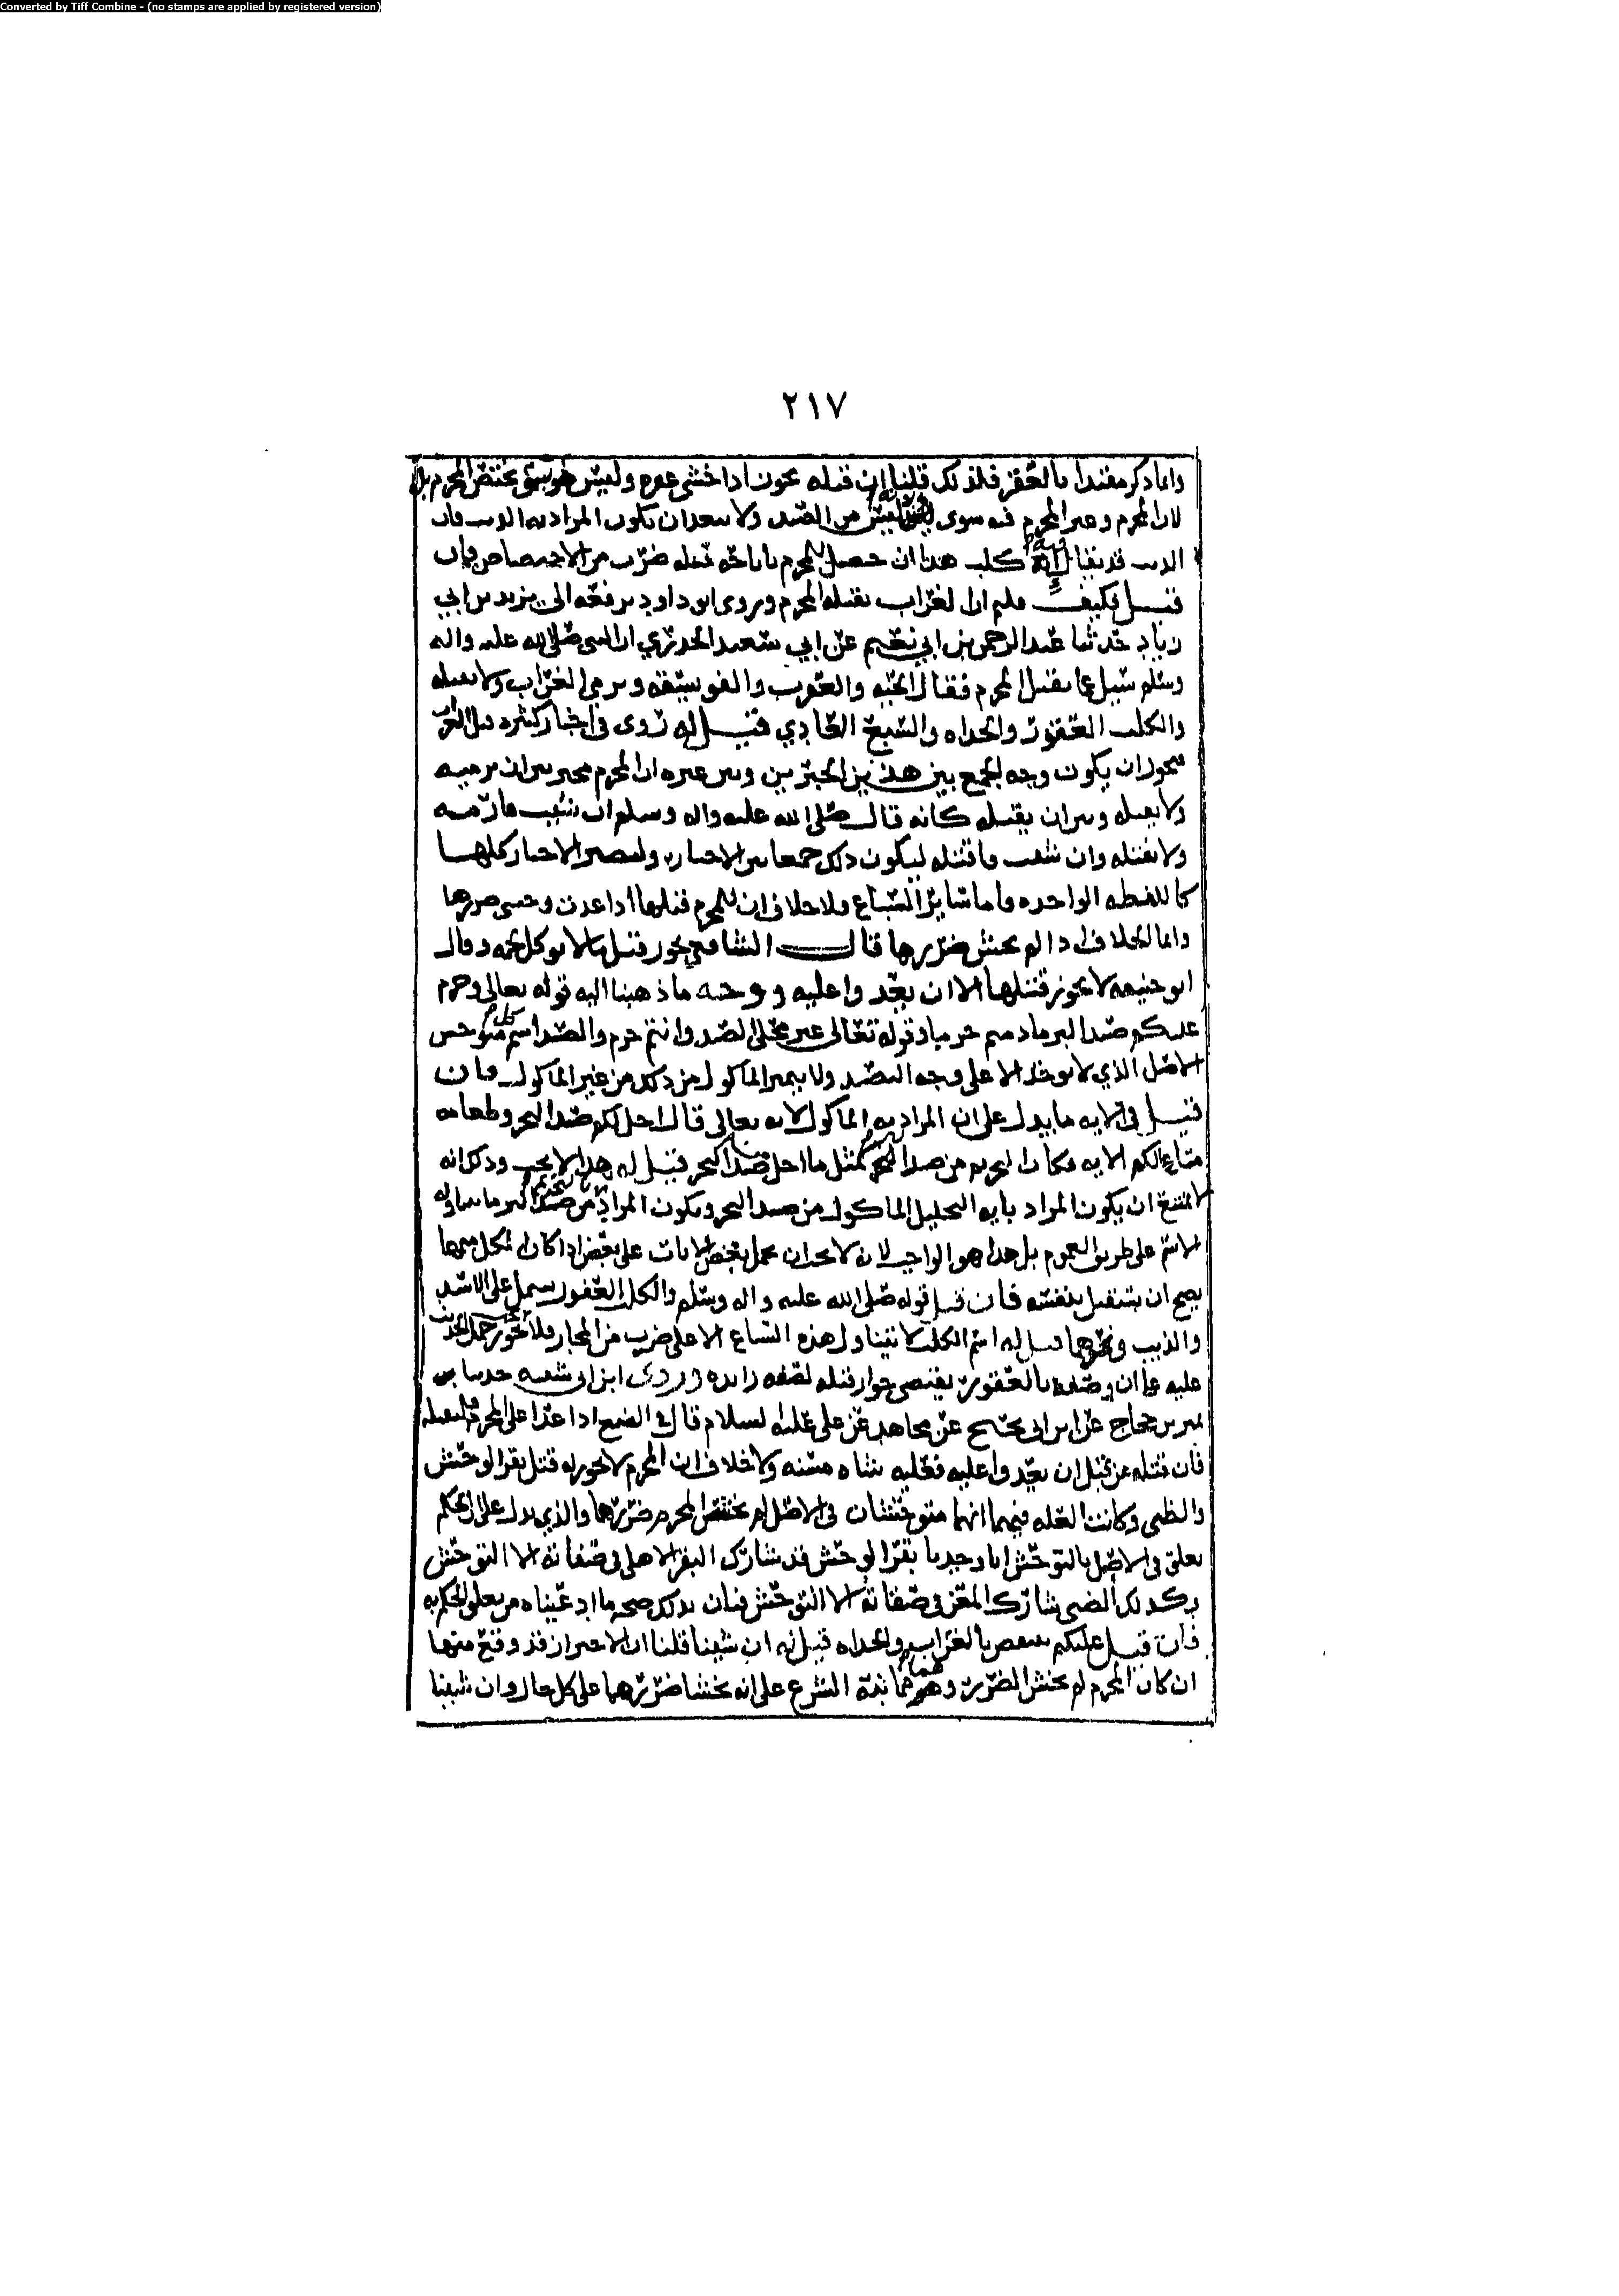 Converted by Tiff Combine - (no stamps are applied by registered version)
٢١٧
وانما ذكر مقيدا بالعقر فلذلك قلنا ان قتله يجوز اذا خشي عقره وليس هو شي يختص المحرم بل
لان المحرم وغير المحرم فيه سوى ليس من الصيد ولا يبعد ان يكون المراد به الذيب فان
الذيب قد يقال انه كلب هذا ان حصل للمحرم باباحة قتله ضرب من الاختصاص فان
قيل فكيف قلتم ان الغراب يقتله المحرم وروى ابو داود يرفعه الى يزيد بن ابي
زياد حدثنا عبد الرحمن بن ابي نعيم عن ابي سعيد الخدري ان النبي صلى الله عليه واله
وسلم سيل عما يقتل المحرم فقال الحيه والعقرب والفويسقه ويرمي الغراب ولا يقتله
والكلب العقور والحداه والسبع العادي قيل له روى في اخبار كثيره قتل الغراب
فيجوز ان يكون وجه الجمع بين هذين الخبرين وبين غيره ان المحرم مخير بين ان يرميه
ولا يقتله وبين ان يقتله كانه قال صلى الله عليه واله وسلم ان شيت فارمه
ولا تقتله وان شيت فاقتله ليكون ذلك جمعا بين الاخبار ولتصير الاخبار كلها
كاللفظه الواحده فاما سائر السباع فلا خلاف ان للمحرم قتلها اذا عدت وخشي ضررها
وانما الخلاف اذا لم يخش ضررها قال الشافعي يجوز قتل ما لا يوكل لحمه وقال
ابو حنيفه لا يجوز قتلها الا ان يعدوا عليه ووجه ما ذهبنا اليه قوله تعالى وحرم
عليكم صيد البر ما دمتم حرما وقوله تعالى غير محلي الصيد وانتم حرم والصيد اسم كل متوحش
الاصل الذي لا يوخذ الا على وجه التصيد ولا يميز الماكول من ذلك من غير الماكول فان
قيل في الايه ما يدل على ان المراد به الماكول لانه تعالى قال احل لكم صيد البحر وطعامه
متاعا لكم الايه فكان التحريم من صيد البر كمثل ما احل من صيد البحر قيل له هذا لا يجب وذلك انه
لا يمتنع ان يكون المراد بايه التحليل الماكول من صيد البحر ويكون المراد بايه التحريم من صيد البر ما يتناوله
الاسم على طريق العموم بل هذا هو الواجب لانه لا يجب ان يحمل بعض الايات على بعض اذا كان لكل منهما
يصح ان يستقل بنفسه فان قيل قوله صلى الله عليه واله وسلم والكلب العقور يشمل على الاسد
والذيب ونحوهما قيل له اسم الكلب لا يتناول هذه السباع الا على ضرب من المجاز فلا يجوز حمل الحديث
عليه على ان وصفه بالعقور يقتضي جواز قتله لصفه زايده وروى ابن ابي شيبه حدثنا
بن حجاج عن ابن ابي نجيح عن مجاهد عن علي عليه السلام قال في الضبع اذا عدا على المحرم فليقتله
فان قتله من قبل ان يعدوا عليه فعليه شاه مسنه ولا خلاف ان المحرم لا يجوز له قتل بقر الوحش
والظبي وكانت العله فيهما انهما متوحشان في الاصل لم يختص المحرم ضررهما والذي يدل على ان الحكم
تعلق في الاصل بالتوحش انا وجدنا بقر الوحش قد شارك البقر الاهلي في صفاته الا التوحش
وكذلك الضبي شارك المعز في صفاته الا التوحش فبان بذلك صحه ما ادعيناه من تعلق الحكم به
فان قيل عليكم ينتقض بالغراب والحداه قيل له ان شينا قلنا ان الاحتراز قد وقع منهما
ان كان المحرم لم يخش الضرر وهما مما نبه الشرع على انه يخشا ضررهما على كل حال وان شينا